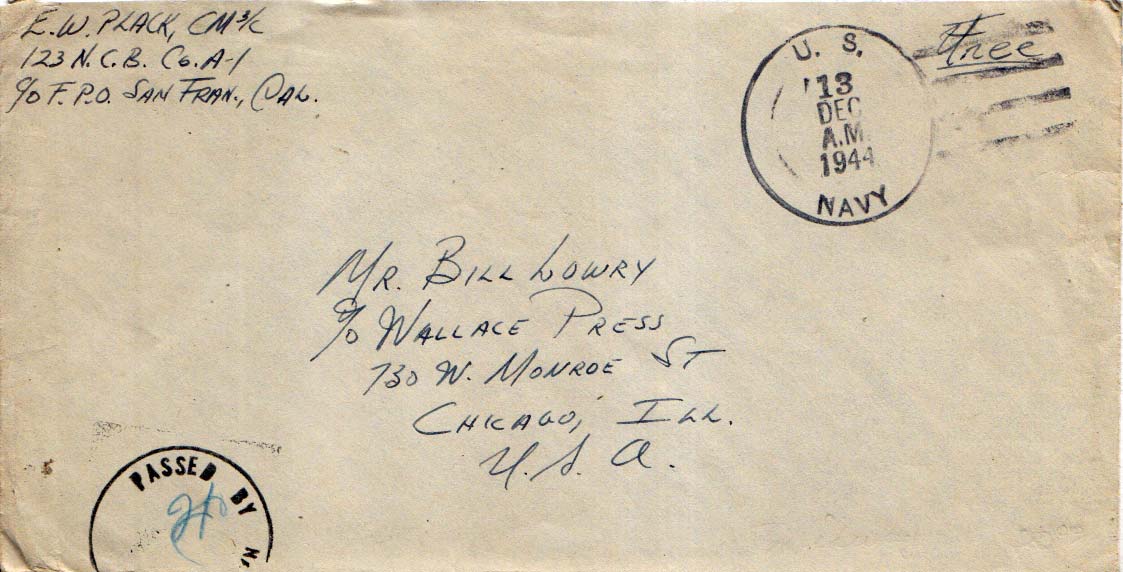 E. W. PLACK, CM 3/c
123 N. C. B. Co. A-1
c/o F. P. O. SAN FRAN., CAL.
Free
U. S.
13
DEC
A.M.
1944
NAVY
MR. BILL LOWRY
c/o WALLACE PRESS
730 W. MONROE ST
CHICAGO, ILL.
U. S. A.
PASSED BY